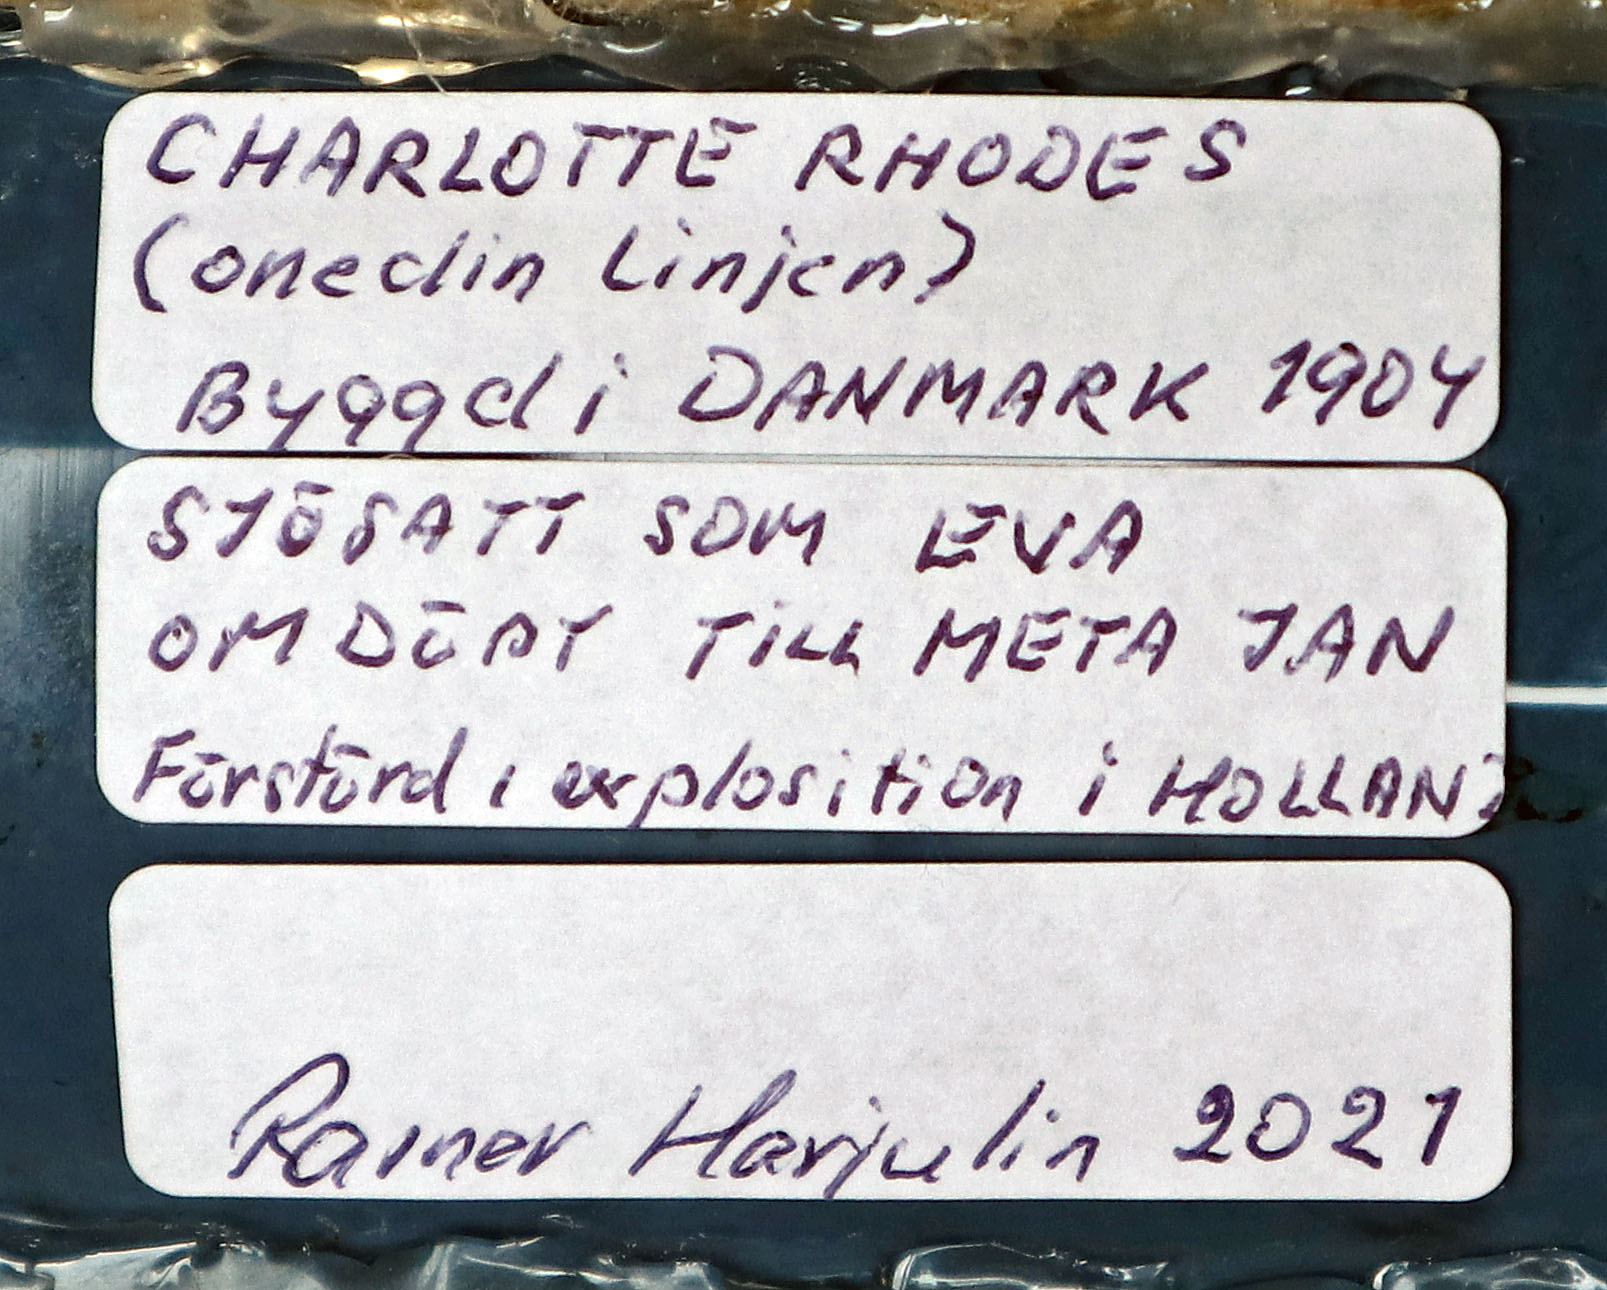 CHARLOTTE RHODES
(onedin Linjen)
Byggd i DANMARK 1904
SJÖSATT SOM EVA
OMDÖPT TiLL META JAN
Förstörd i explosition i HOLLAND
Rainer Harjulin 2021